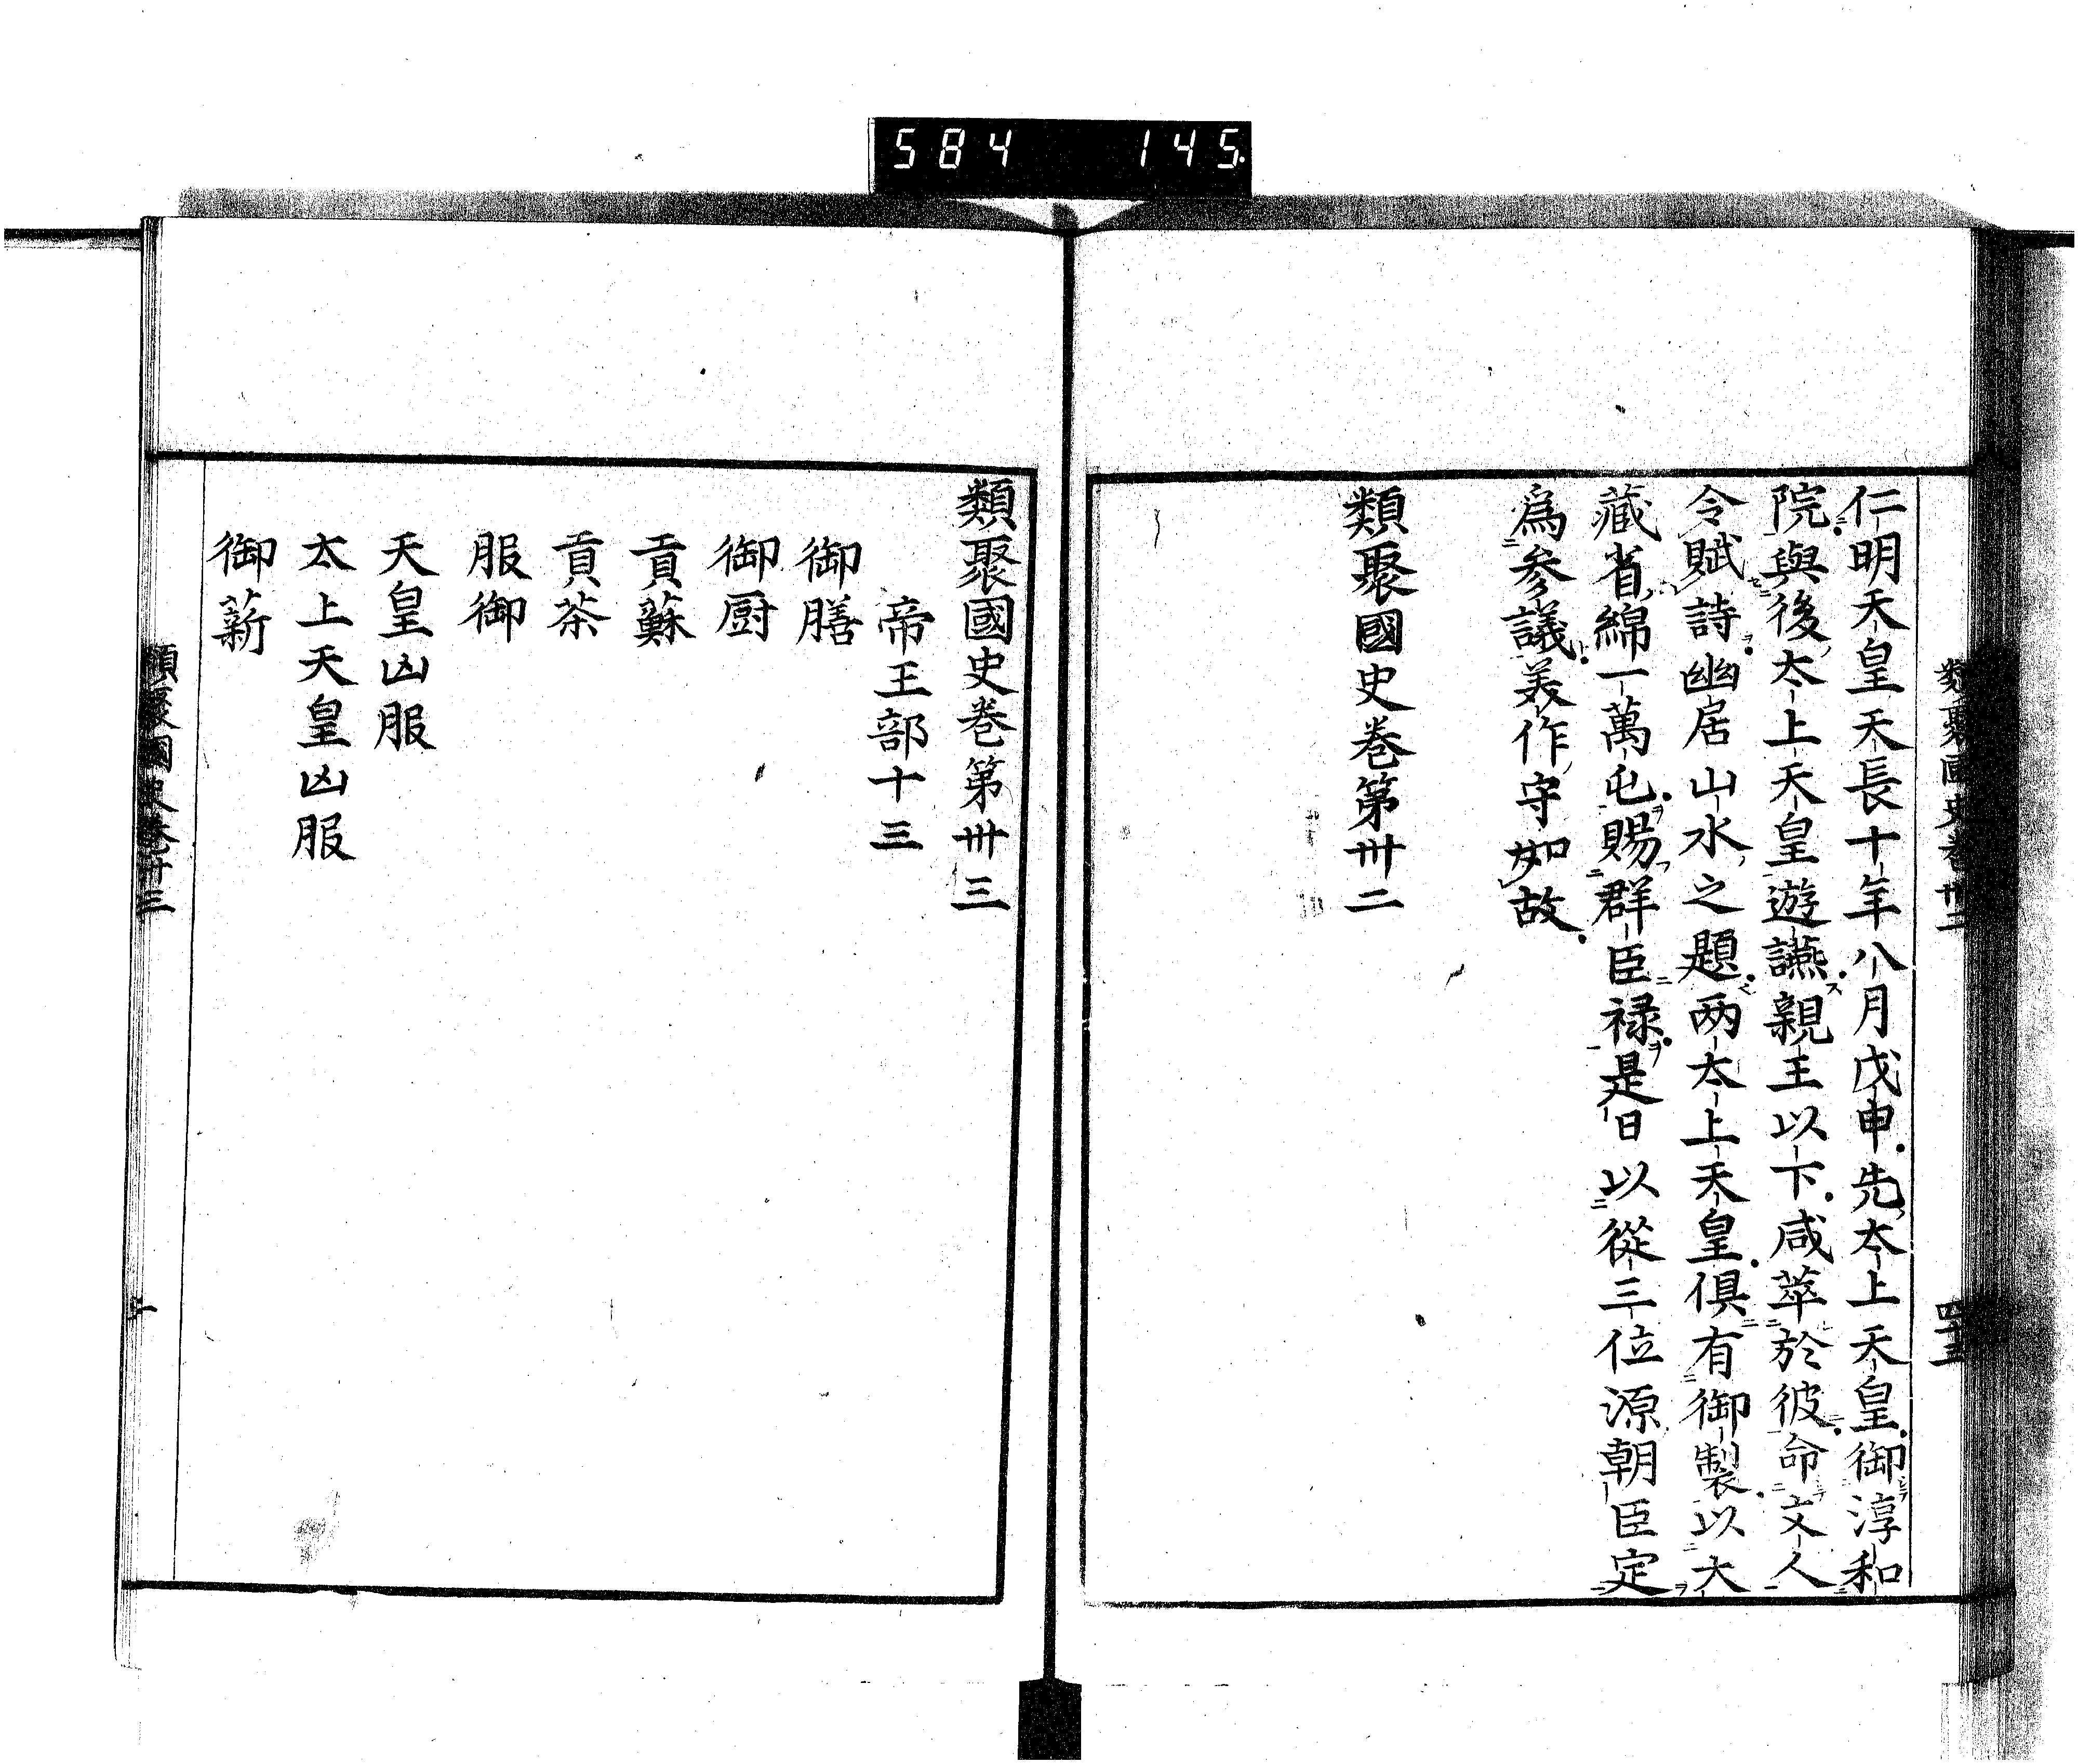 584 145
類聚國史卷卅二
四十三
仁明天皇天長十年八月戊申先太上天皇御淳和
院與後太上天皇遊讌親王以下咸萃於彼命文人
令賦詩幽居山水之題兩太上天皇俱有御製以大
藏省綿一萬屯賜群臣禄是日以從三位源朝臣定
爲參議美作守如故
類聚國史卷第卅二
類聚國史卷第卅三
帝王部十三
御膳
御厨
貢蘇
貢茶
服御
天皇凶服
太上天皇凶服
御薪
類聚國史卷卅三
一